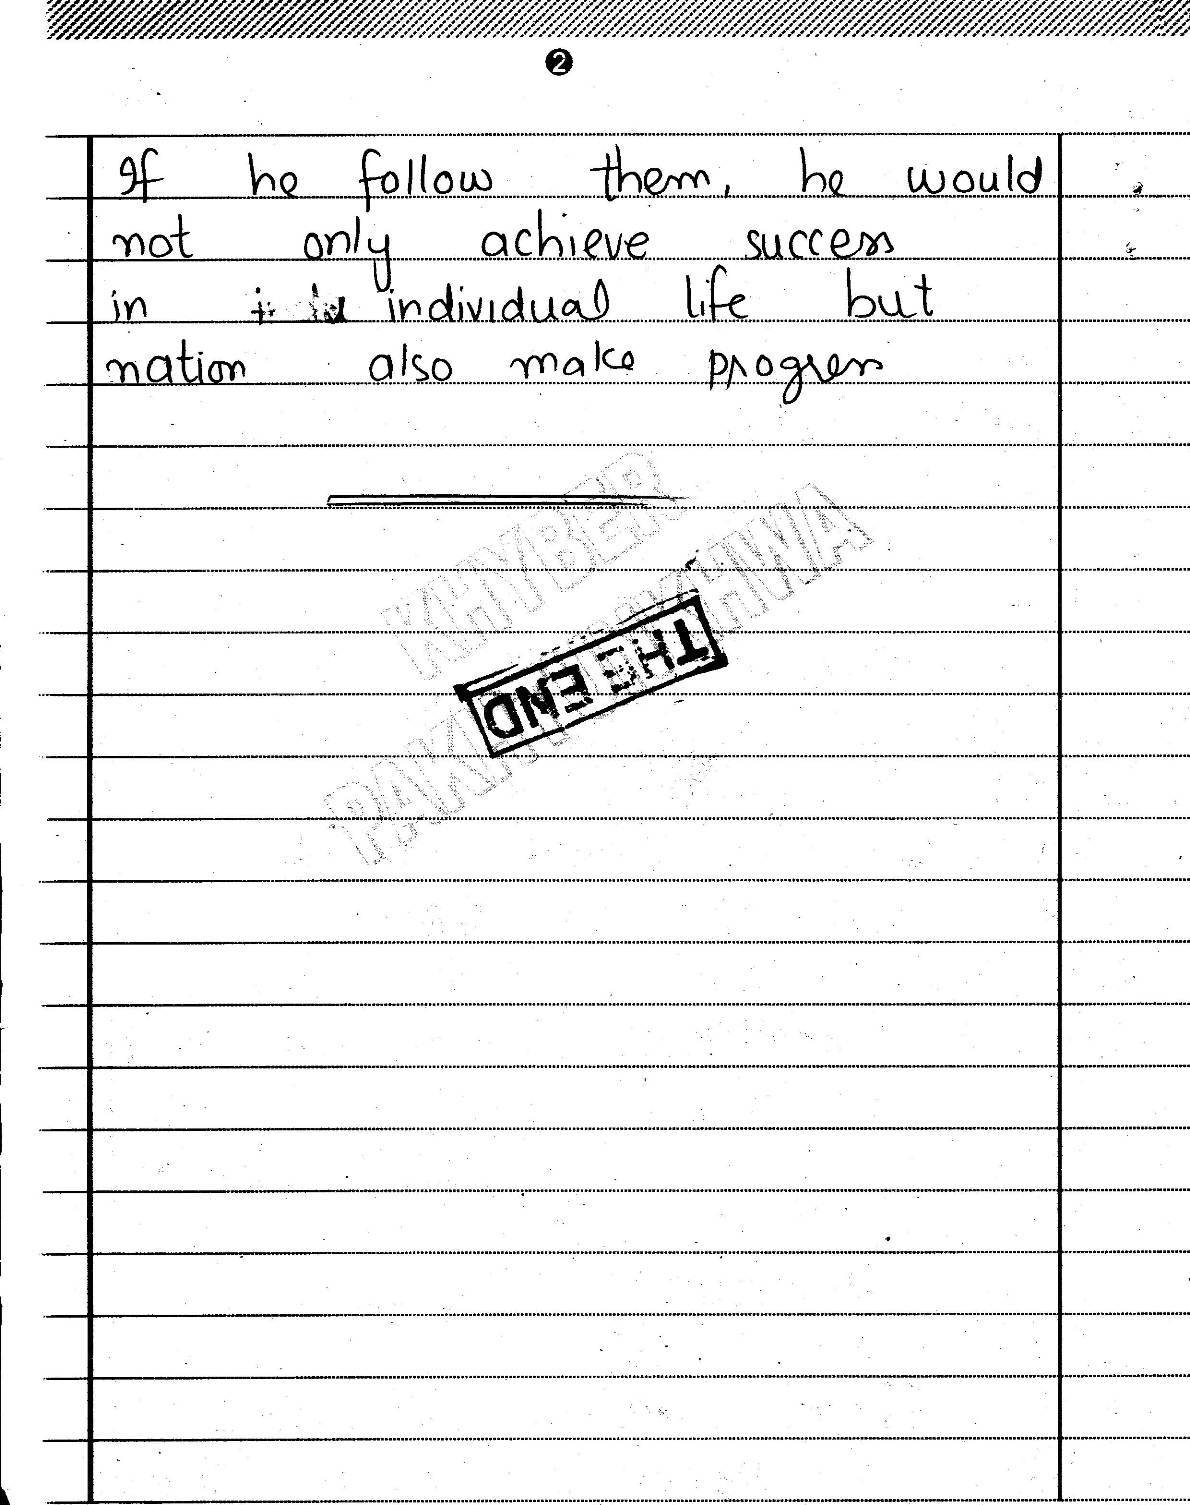 2
If he follow them, he would
not only achieve success
in individual life but
nation also make progress
KHYBER
PAKHTUNKHWA
THE END